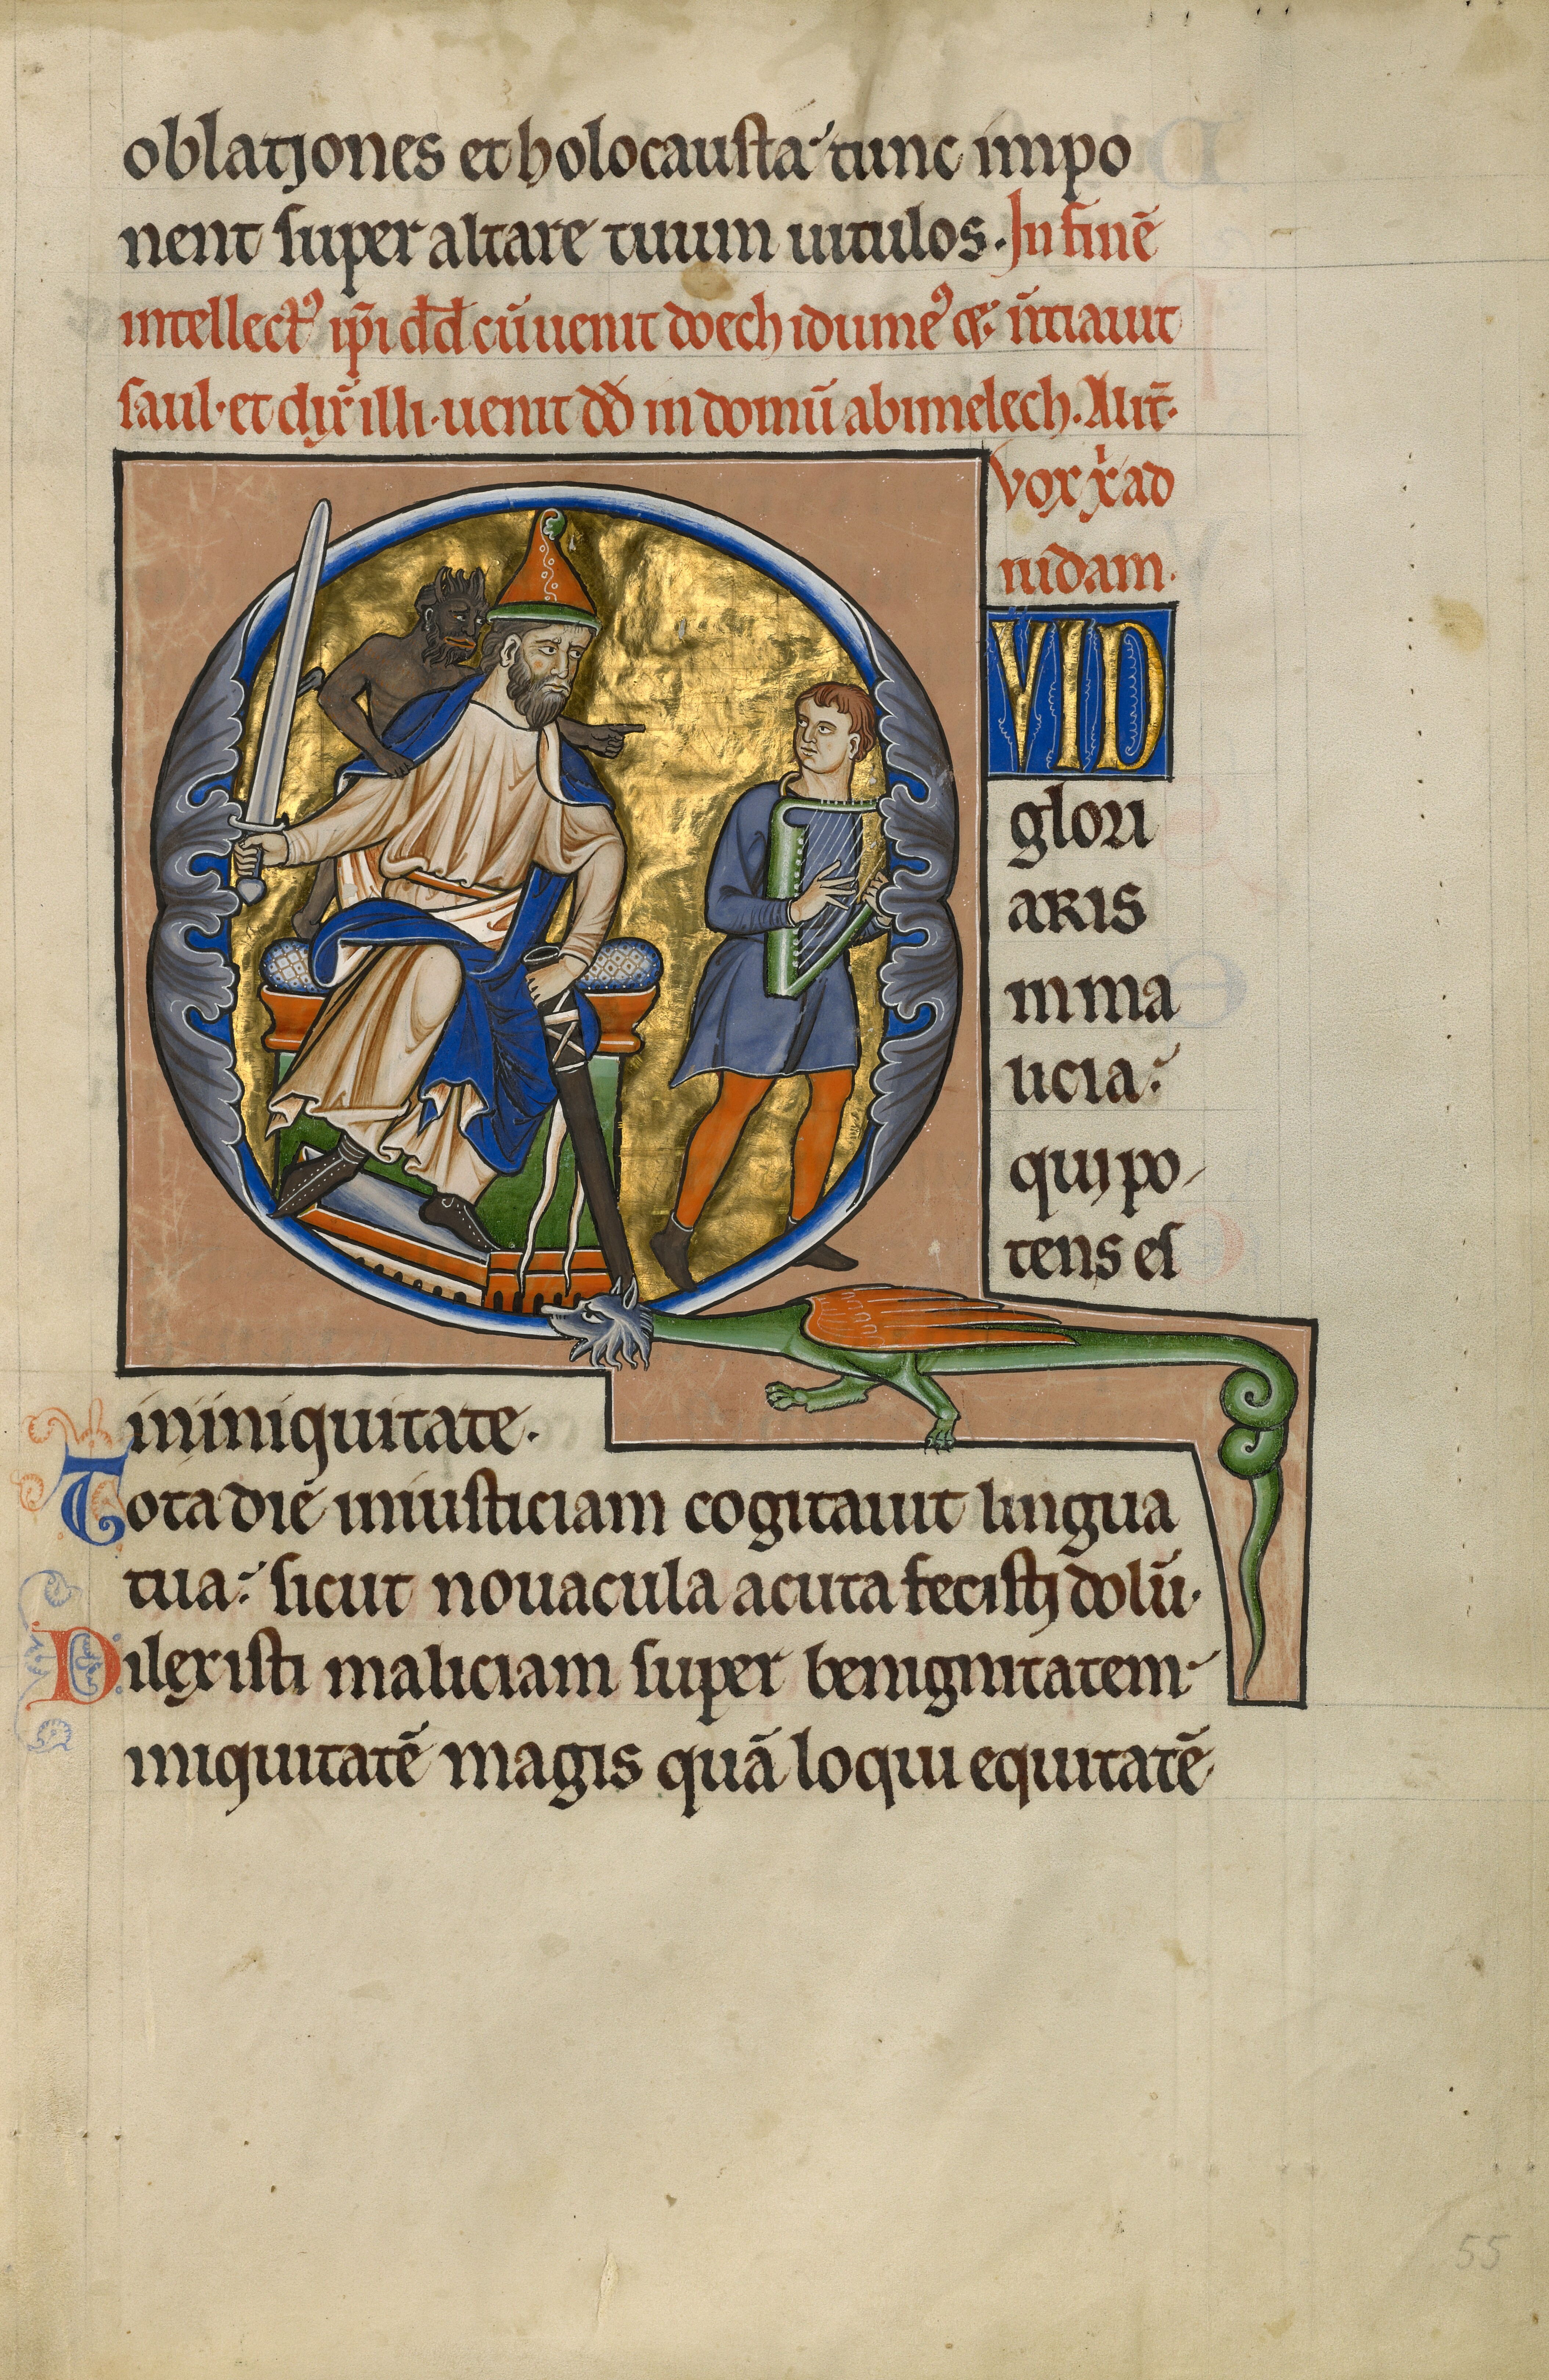 oblationes et holocausta tunc impo
nent super altare tuum uitulos. In finē
intellectꝰ ip̄i dd̄ cū uenit doech idumeꝰ & n̄tiauit
saul. et dix̄ illi. uenit dd̄ in domū abimelech. Alit̄.
vox xi ad
iudam.
QVID
glori
aris
in ma
licia:
qui po
tens es
in iniquitate.
Tota die iniusticiam cogitauit lingua
tua: sicut nouacula acuta fecisti dolū.
Dilexisti maliciam super benignitatem
iniquitatē magis quā loqui equitatē
55